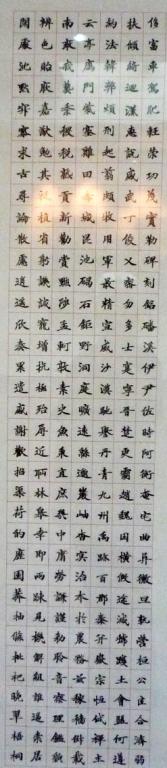 侈富車駕肥輕策功茂實勒碑刻銘磻溪伊尹佐時阿衡奄宅曲阜微旦孰營桓公匡合濟弱
扶傾綺迴漢惠說感武丁俊乂密勿多士寔寧晉楚更霸趙魏困橫假途滅虢踐土會盟何遵
約法韓弊煩刑起翦頗牧用軍最精宣威沙漠馳譽丹青九州禹跡百郡秦并嶽宗恆岱禪主
云亭雁門紫塞雞田赤城昆池碣石鉅野洞庭曠遠綿邈巖岫杳冥治本於農務茲稼穡俶載
南畝我藝黍稷稅熟貢新勸賞黜陟孟軻敦素史魚秉直庶幾中庸勞謙謹勅聆音察理鑑貌
辨色貽厥嘉猷勉其祗植省躬譏誡寵增抗極殆辱近恥林皋幸即兩疏見機解組誰逼索居
閑處沉默寂寥求古尋論散慮逍遙欣奏累遣慼謝歡招渠荷的歷園莽抽條枇杷晚翠梧桐